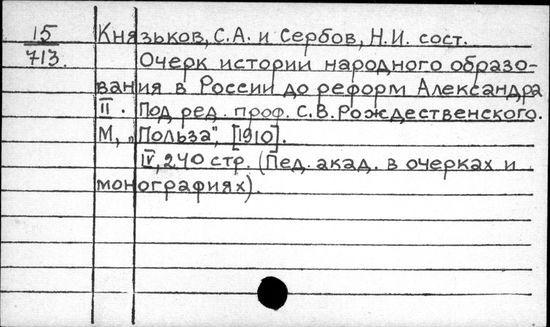 15 Князьков, С.А. и Сербов, Н.И. сост.
713. Очерк истории народного образо-
вания в России до реформ Александра
II. Под ред. проф. С.В. Рождественского.
М, „Польза", [1910].
IV, 240 стр. (Пед. акад. в очерках и
монографиях).